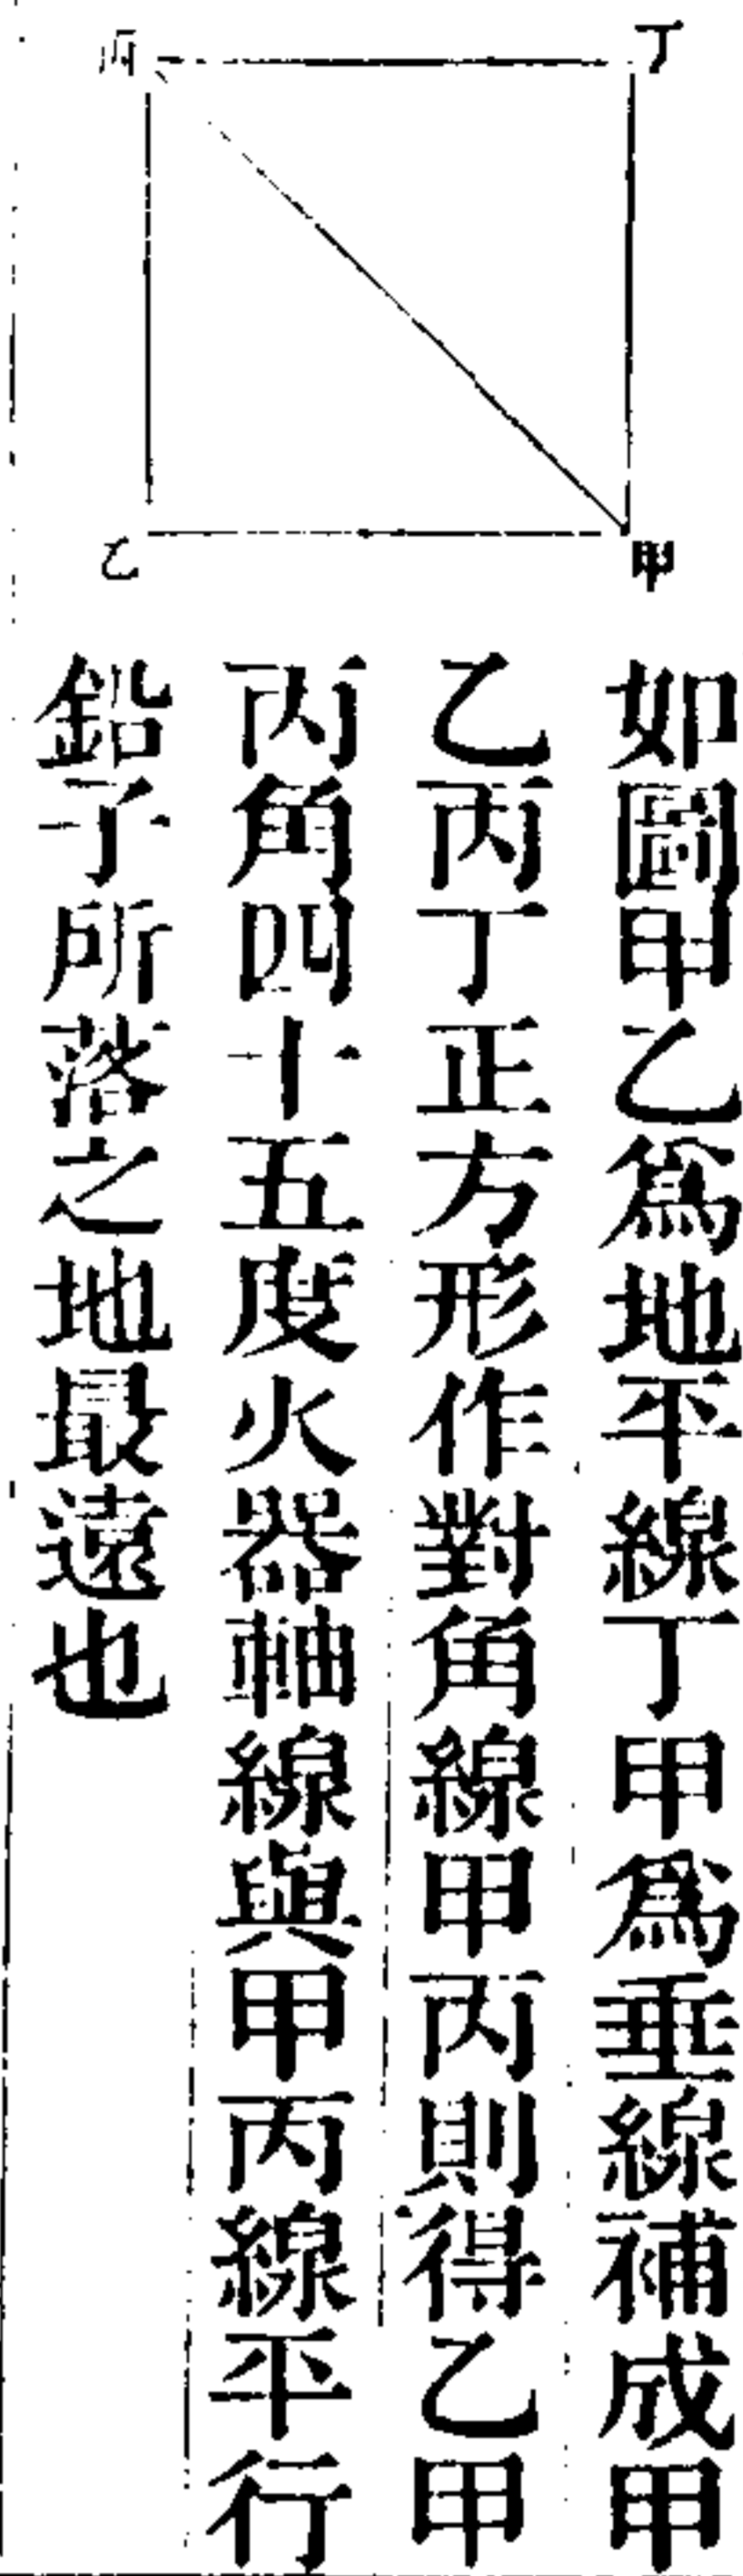 丁
丙
甲
乙
如圖甲乙爲地平線丁甲爲垂線補成甲
乙丙丁正方形作對角線甲丙則得乙甲
丙角四十五度火器軸線與甲丙線平行
鉛子所落之地最遠也